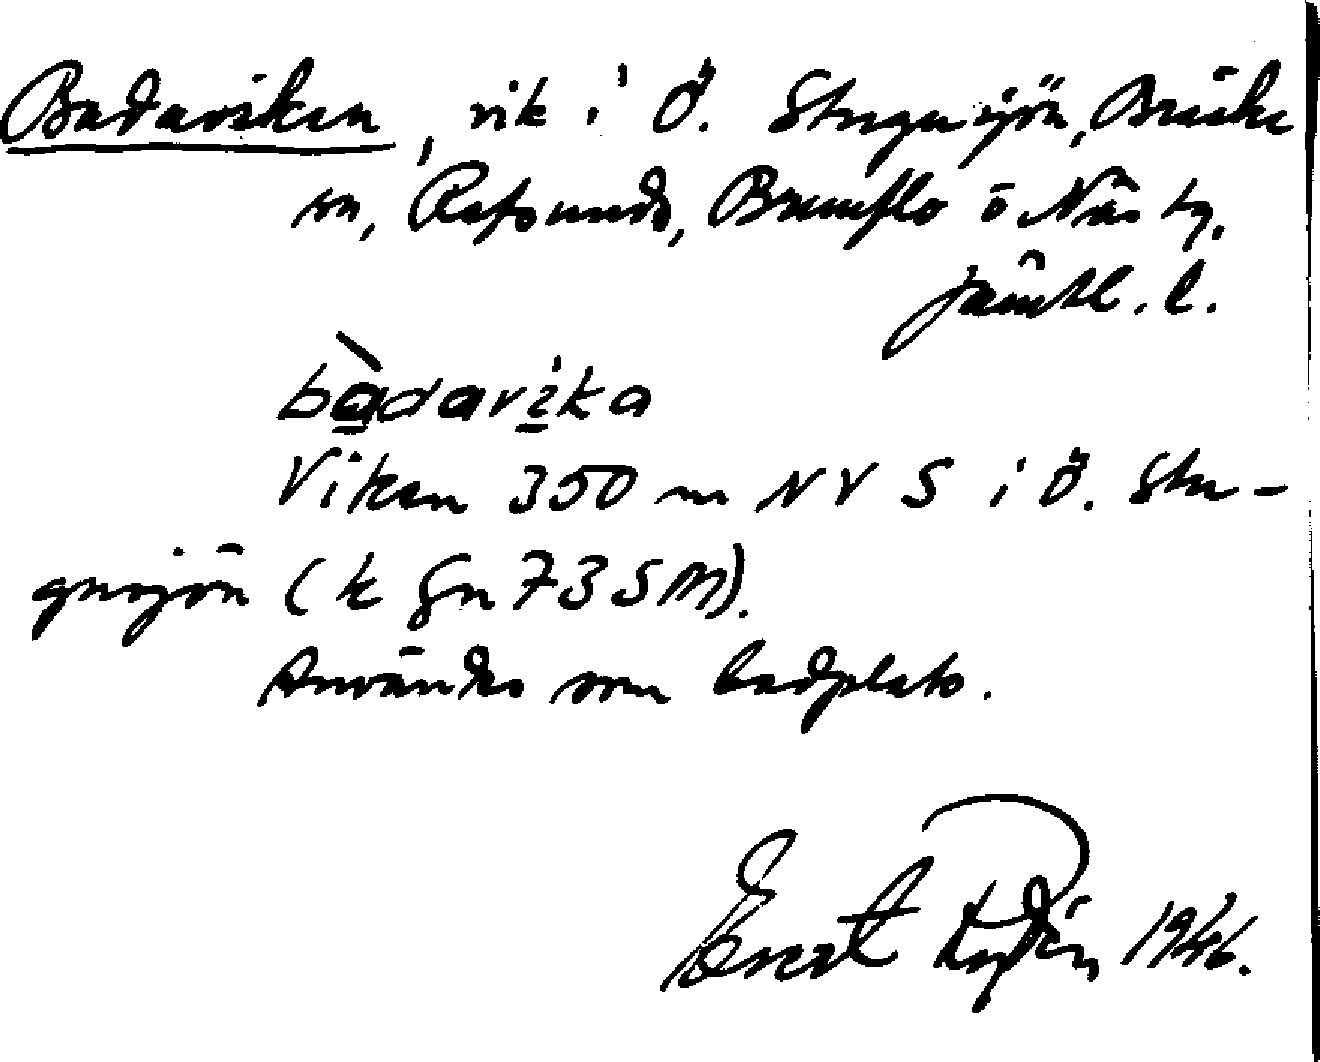 Badaviken, vik i Ö. Stugusjön, Bräcke
sn, Refsunds, Brunflo o Näs tg,
Jämtl. l.
bàdavika
Viken 350 m NV S i Ö. Stu-
gusjön (k gn 73 SM).
Användes som badplats.
Evert 1946.